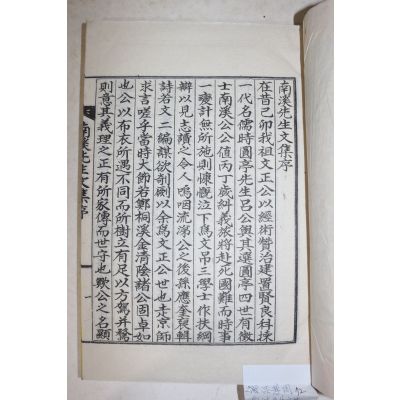 南溪先生文集序
在昔己卯我祖文正公以經術贊治建置賢良科採
一代名儒時圓亭先生呂公與其選圓亭四世有徵
士南溪公公値丙丁歲糾義旅將赴死國難而時事
一變計無所施則慷慨泣下爲文吊三學士作扶綱
辭以見志讀之令人嗚咽流涕公之後孫應奎裒輯
詩若文二編謀欲剞劂以余爲文正公也世走京師
求言嗟乎當時大節若鄭桐溪金淸陰諸公固卓如
也公以布衣所遇不同而所樹立有足以方駕并騖
則意其義理之正有所家傳而世守也歟公之名顯
南溪先生文集序
一